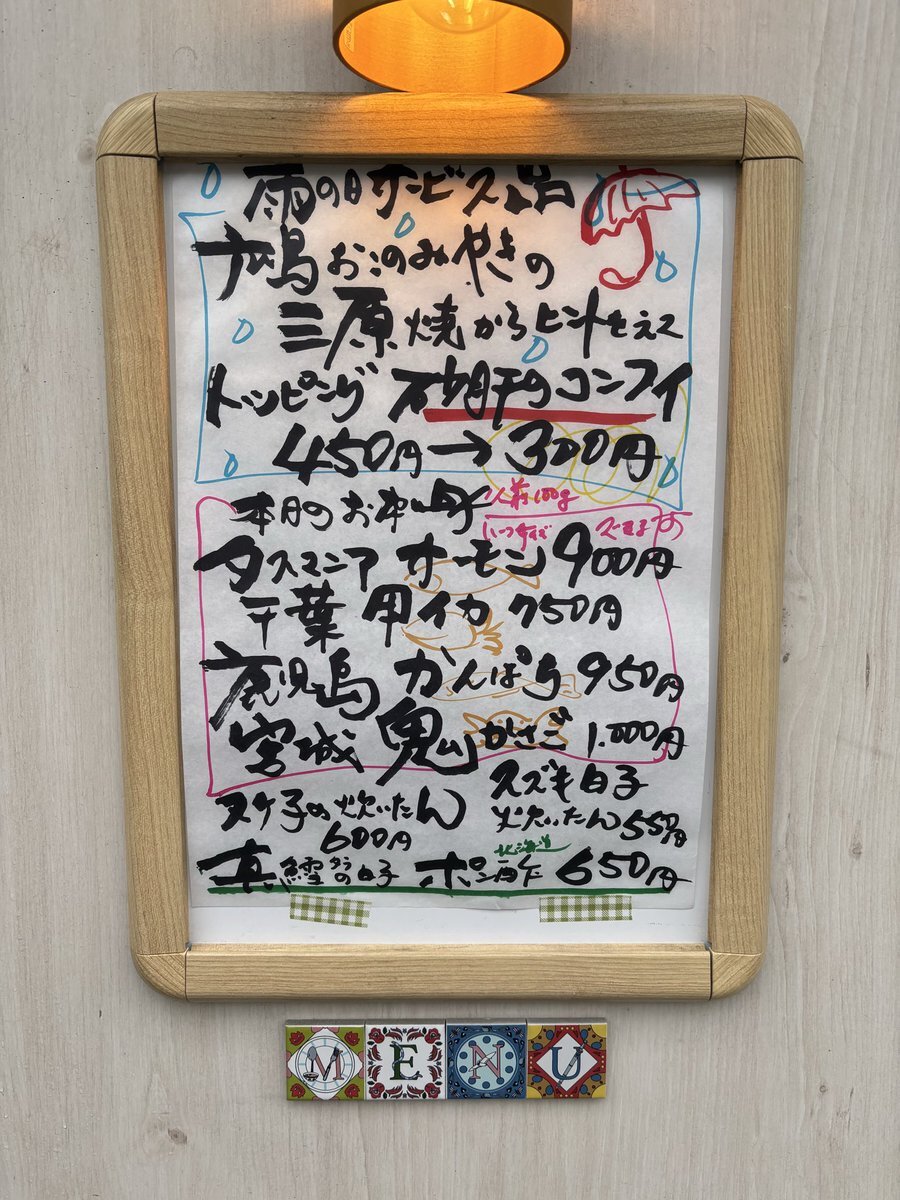 雨の日サービス品
広島お好のみやきの
三原焼からヒントをえて
トッピング 砂肝のコンフィ
450円→300円
本日のお造り
タスマニア サーモン 900円
千葉 甲イカ 750円
鹿児島 かんぱち 950円
宮城 鬼かさご 1.000円
スケ子の炊いたん
600円
スズキ白子
炊いたん 550円
北海道
真鱈の白子 ポン酢 650円
MENU